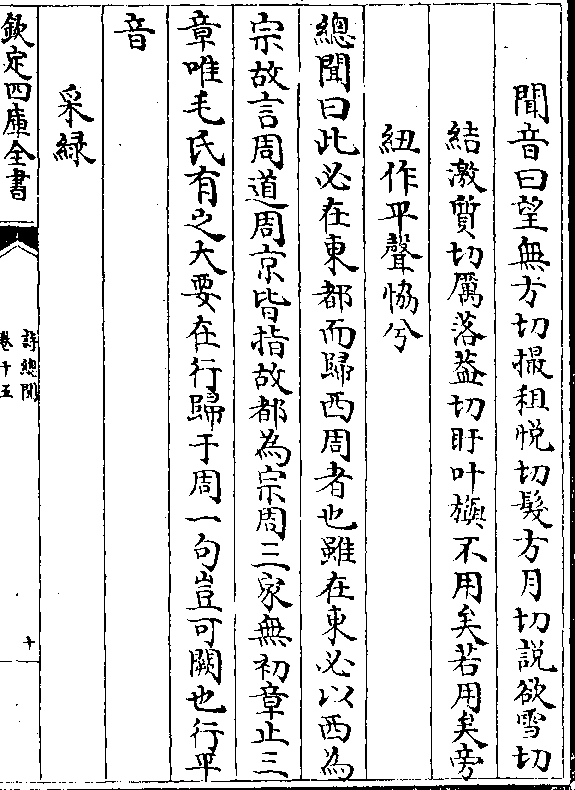 聞音曰望無方切撮租悅切髮方月切説欲雪切
結激質切厲落蓋切盱叶旟不用矣若用矣旁
紐作平聲恊兮
總聞曰此必在東都而歸西周者也雖在東必以西為
宗故言周道周京皆指故都為宗周三家無初章止三
章唯毛氏有之大要在行歸于周一句豈可闕也行平
音
采緑
欽定四庫全書
詩總聞
卷十五
十